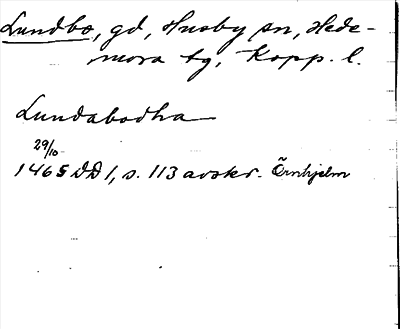 Lundbo, gd, Husby sn, Hede-
mora tg, Kopp. l.
Lundabodha
29/10
1465 DD 1, s. 113 avskr. Örnhjelm